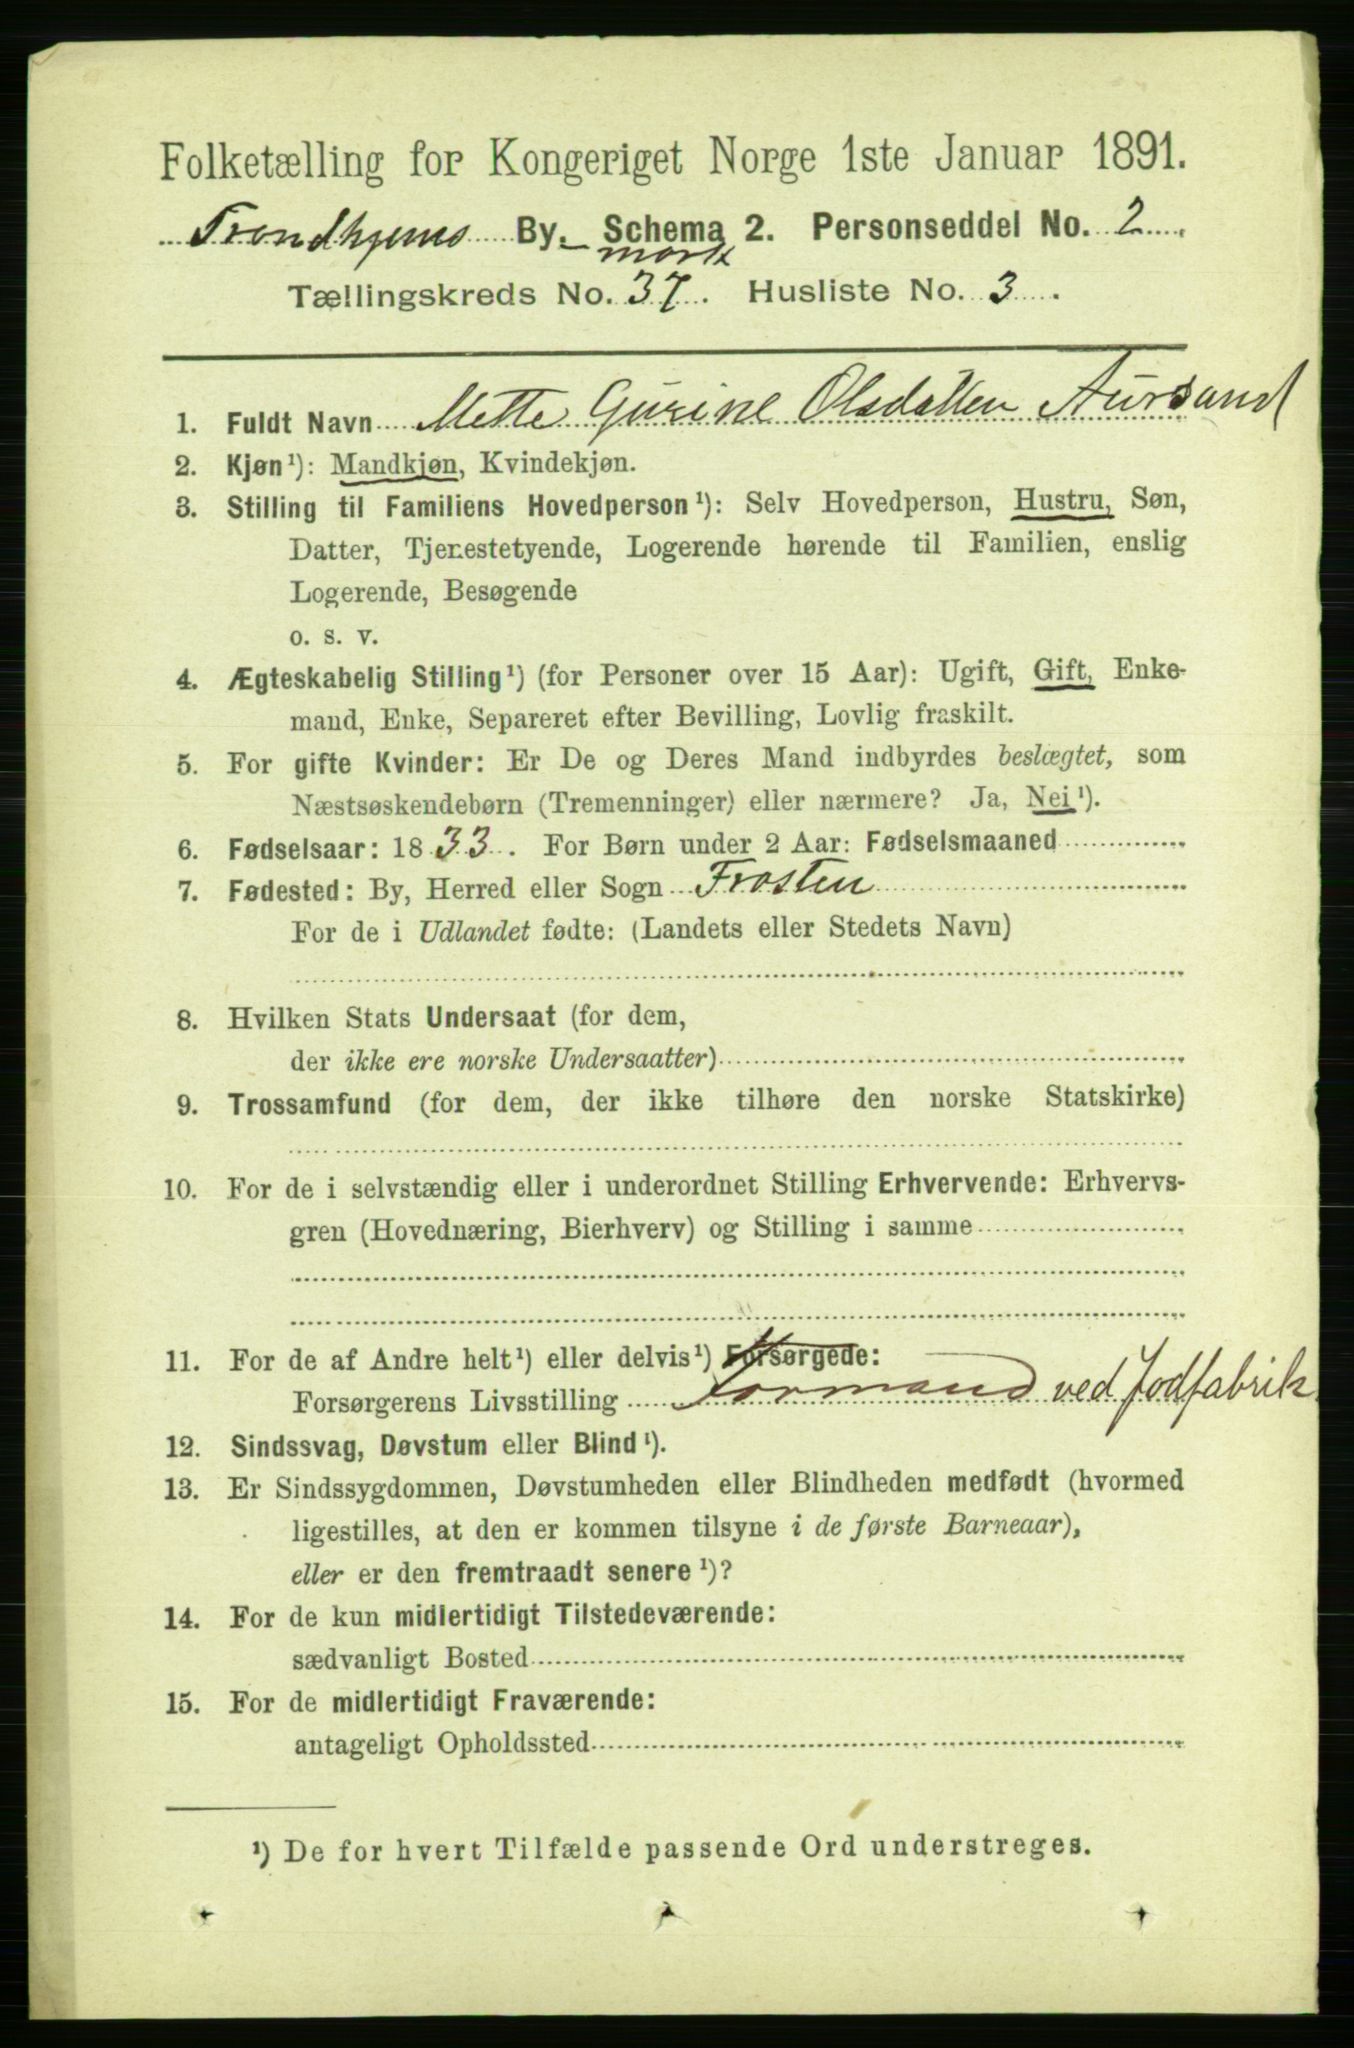 Folketælling for Kongeriget Norge 1ste Januar 1891.
Trondhjems By. Schema 2. Personseddel No. 2
mark
Tællingskreds No. 37. Husliste No. 3.
1. Fuldt Navn Mette Gurine Olsdatter Aursand
2. Kjøn¹): Mandkjøn, Kvindekjøn.
3. Stilling til Familiens Hovedperson¹): Selv Hovedperson, Hustru, Søn,
Datter, Tjenestetyende, Logerende hørende til Familien, enslig
Logerende, Besøgende
o. s. v.
4. Ægteskabelig Stilling¹) (for Personer over 15 Aar): Ugift, Gift, Enke-
mand, Enke, Separeret efter Bevilling, Lovlig fraskilt.
5. For gifte Kvinder: Er De og Deres Mand indbyrdes beslægtet, som
Næstsøskendebørn (Tremenninger) eller nærmere? Ja, Nei¹).
6. Fødselsaar: 1833. For Børn under 2 Aar: Fødselsmaaned
7. Fødested: By, Herred eller Sogn Frosten
For de i Udlandet fødte: (Landets eller Stedets Navn)
8. Hvilken Stats Undersaat (for dem,
der ikke ere norske Undersaatter)
9. Trossamfund (for dem, der ikke tilhøre den norske Statskirke)
10. For de i selvstændig eller i underordnet Stilling Erhvervende: Erhvervs-
gren (Hovednæring, Bierhverv) og Stilling i samme
11. For de af Andre helt¹) eller delvis¹) Forsørgede:
Forsørgerens Livsstilling Formand ved Jodfabrik
12. Sindssvag, Døvstum eller Blind¹).
13. Er Sindssygdommen, Døvstumheden eller Blindheden medfødt (hvormed
ligestilles, at den er kommen tilsyne i de første Barneaar),
eller er den fremtraadt senere¹)?
14. For de kun midlertidigt Tilstedeværende:
sædvanligt Bosted
15. For de midlertidigt Fraværende:
antageligt Opholdssted
¹) De for hvert Tilfælde passende Ord understreges.